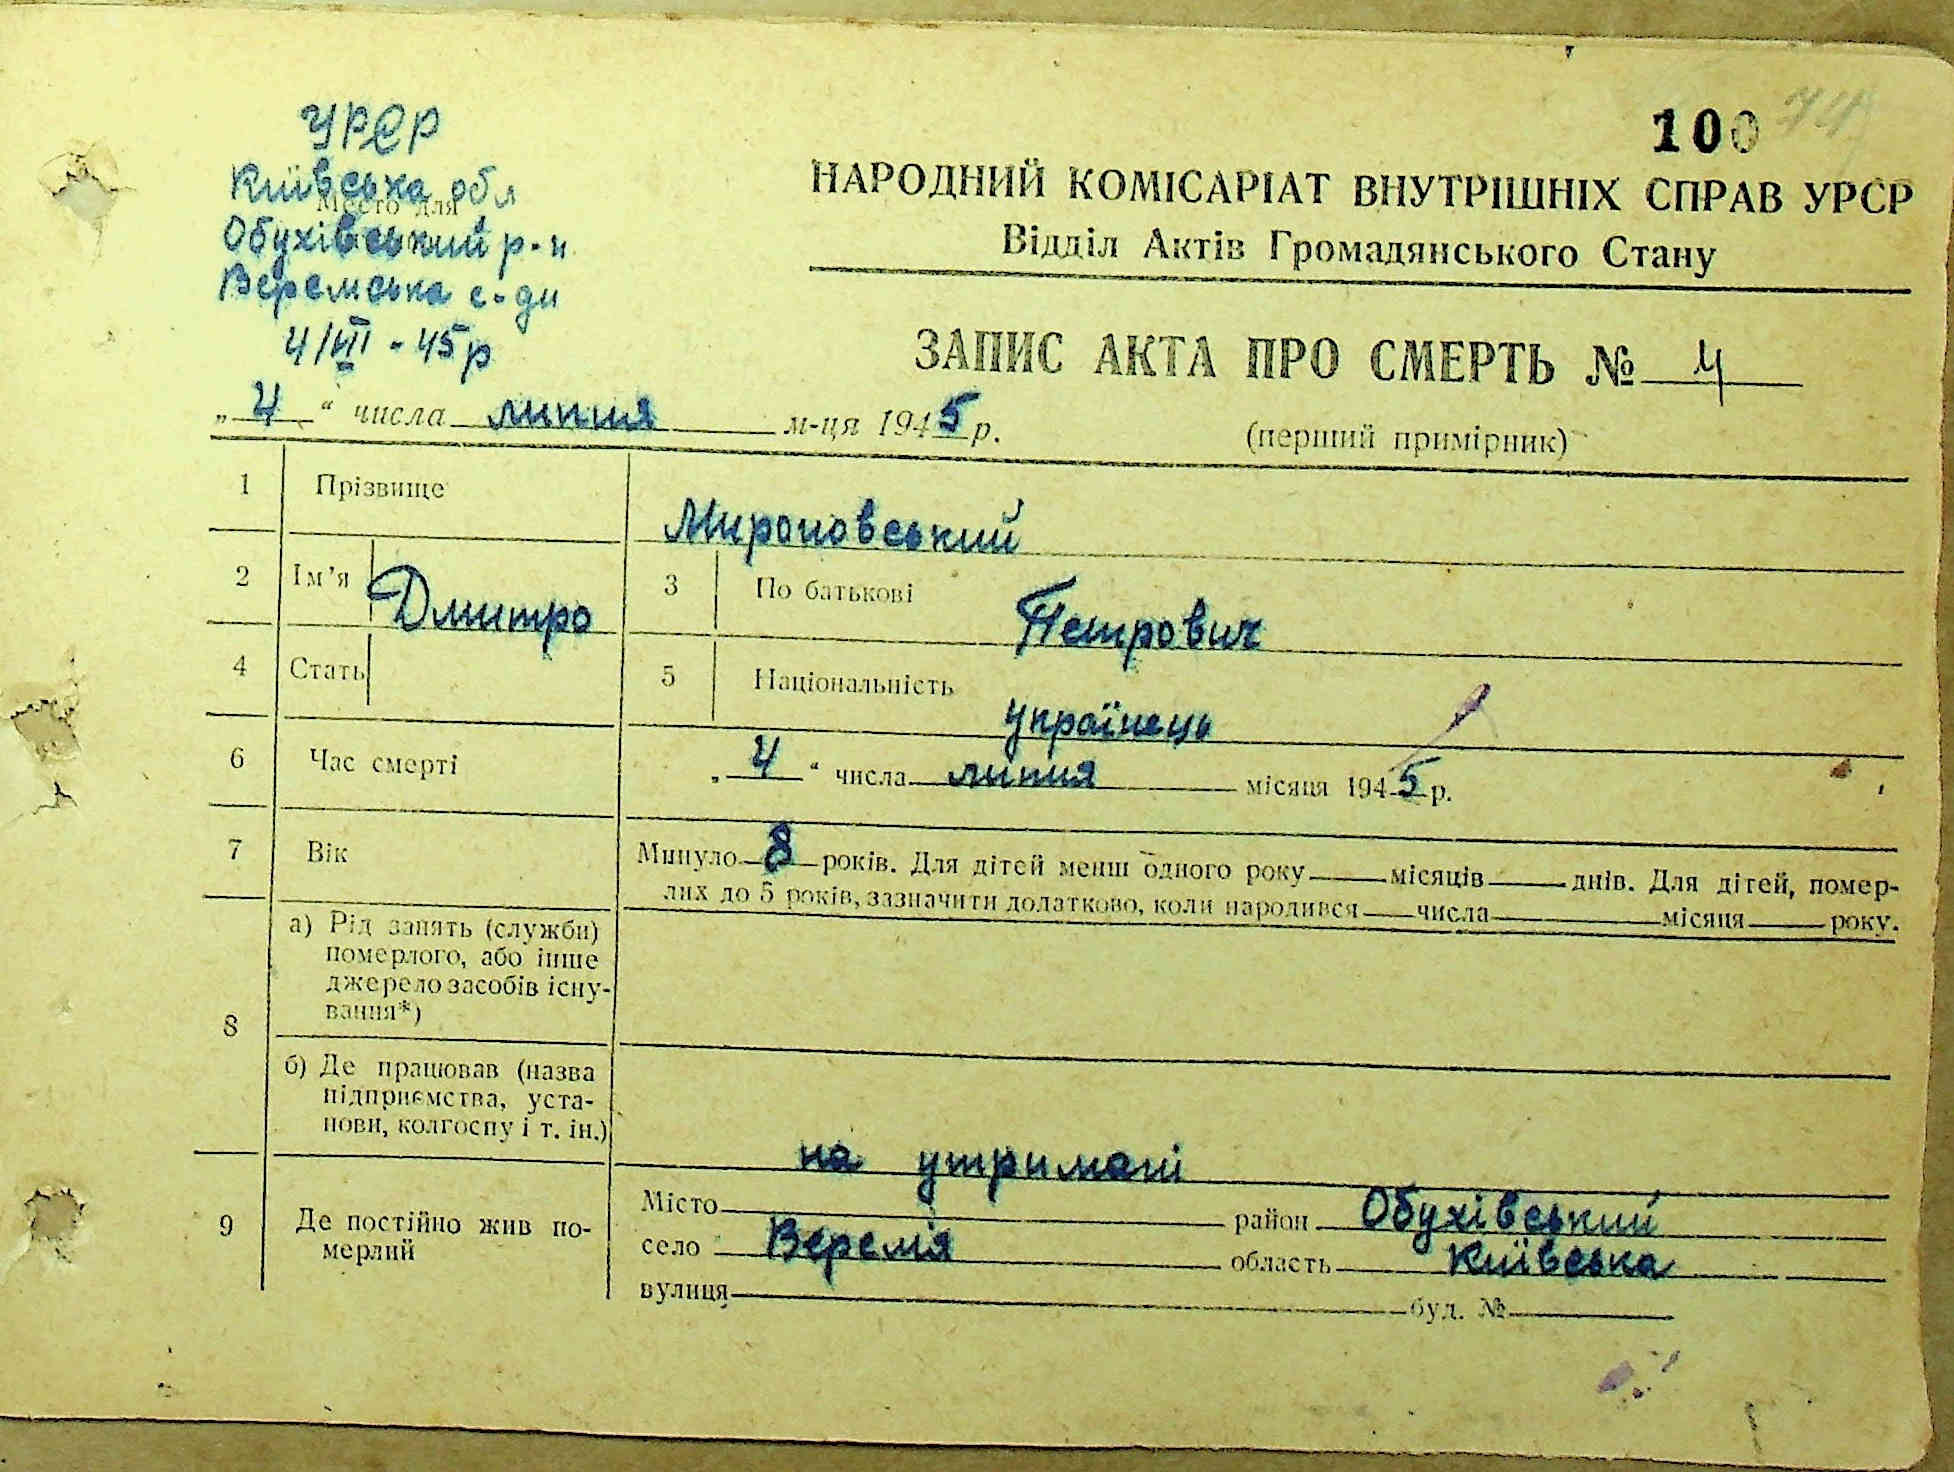 100 74
УРСР
Київська обл
Місто для
Обухівський р-н
Веремська с-ди
4/VII - 45р
НАРОДНИЙ КОМІСАРІАТ ВНУТРІШНІХ СПРАВ УРСР
Відділ Актів Громадянського Стану
ЗАПИС АКТА ПРО СМЕРТЬ № 4
„4“ числа липня м-ця 1945 р.
(перший примірник)
1 Прізвище Мироновський
2 Ім'я Дмитро 3 По батькові Петрович
4 Стать 5 Національність українець
6 Час смерті „4“ числа липня місяця 1945 р.
7 Вік Минуло 8 років. Для дітей менш одного року місяців днів. Для дітей, помер-
лих до 5 років, зазначити додатково, коли народився числа місяця року.
8 а) Рід занять (служби)
померлого, або інше
джерело засобів існу-
вання*)
б) Де працював (назва
підприємства, уста-
нови, колгоспу і т. ін.)
на утримані
9 Де постійно жив по-
мерлий
Місто район Обухівський
село Веремія область Київська
вулиця буд. №